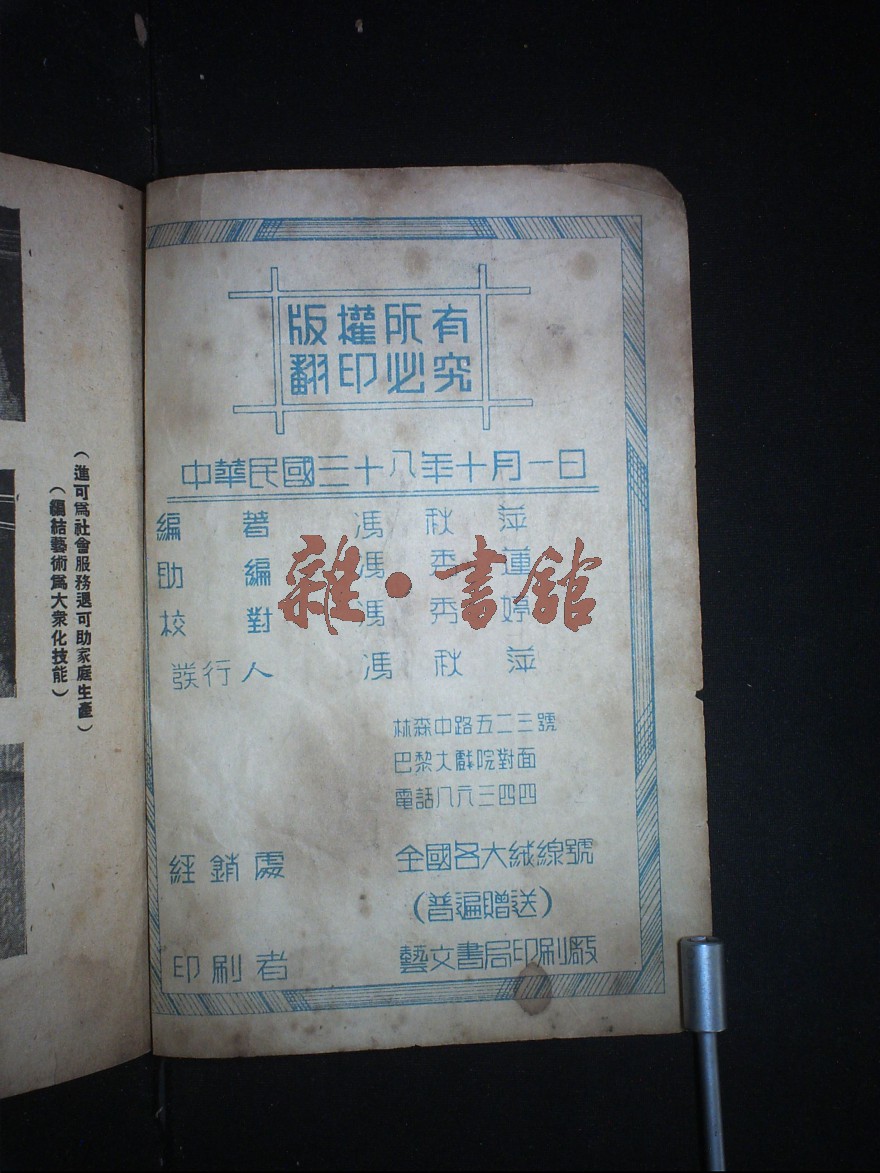 版權所有
翻印必究
中華民國三十八年十月一日
編著 馮秋萍
助編 馮秀蓮
校對 馮秀婷
發行人 馮秋萍
林森中路五二三號
巴黎大戲院對面
電話八六三四四
經銷處 全國各大絨線號
(普遍贈送)
印刷者 藝文書局印刷廠
雜·書館
(進可爲社會服務退可助家庭生產)
(編結藝術爲大衆化技能)